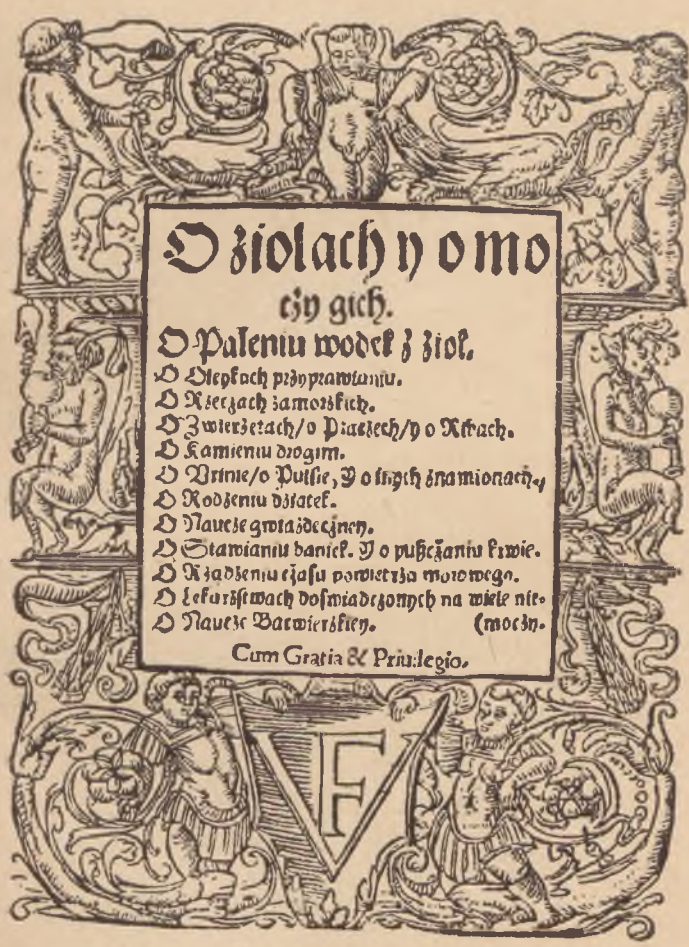 O ziolach y o mo
czy gich.
O Paleniu wodek z zioł.
O Oleykach przyprawianiu.
O Rzeczach zamorskich.
O Zwierzetach/o Ptaczech/y o Ribach.
O Kamieniu drogim.
O Vrinie/o Pulsie, Y o inych znamionach,
O Rodzeniu dziatek.
O Nauce gwiazdeczney.
O Stawianiu baniek. Y o pusczaniu krwie.
O Rządzeniu czasu powietrza morowego.
O Lekarzstwach doswiadczonych na wiele nie-
O Nauce Barwierskiey. (moczy.
Cum Gratia & Priuilegio.
VF